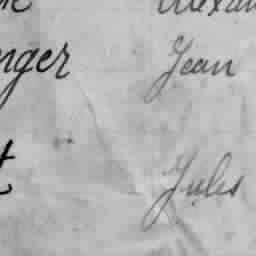 nger Jean
t Jules